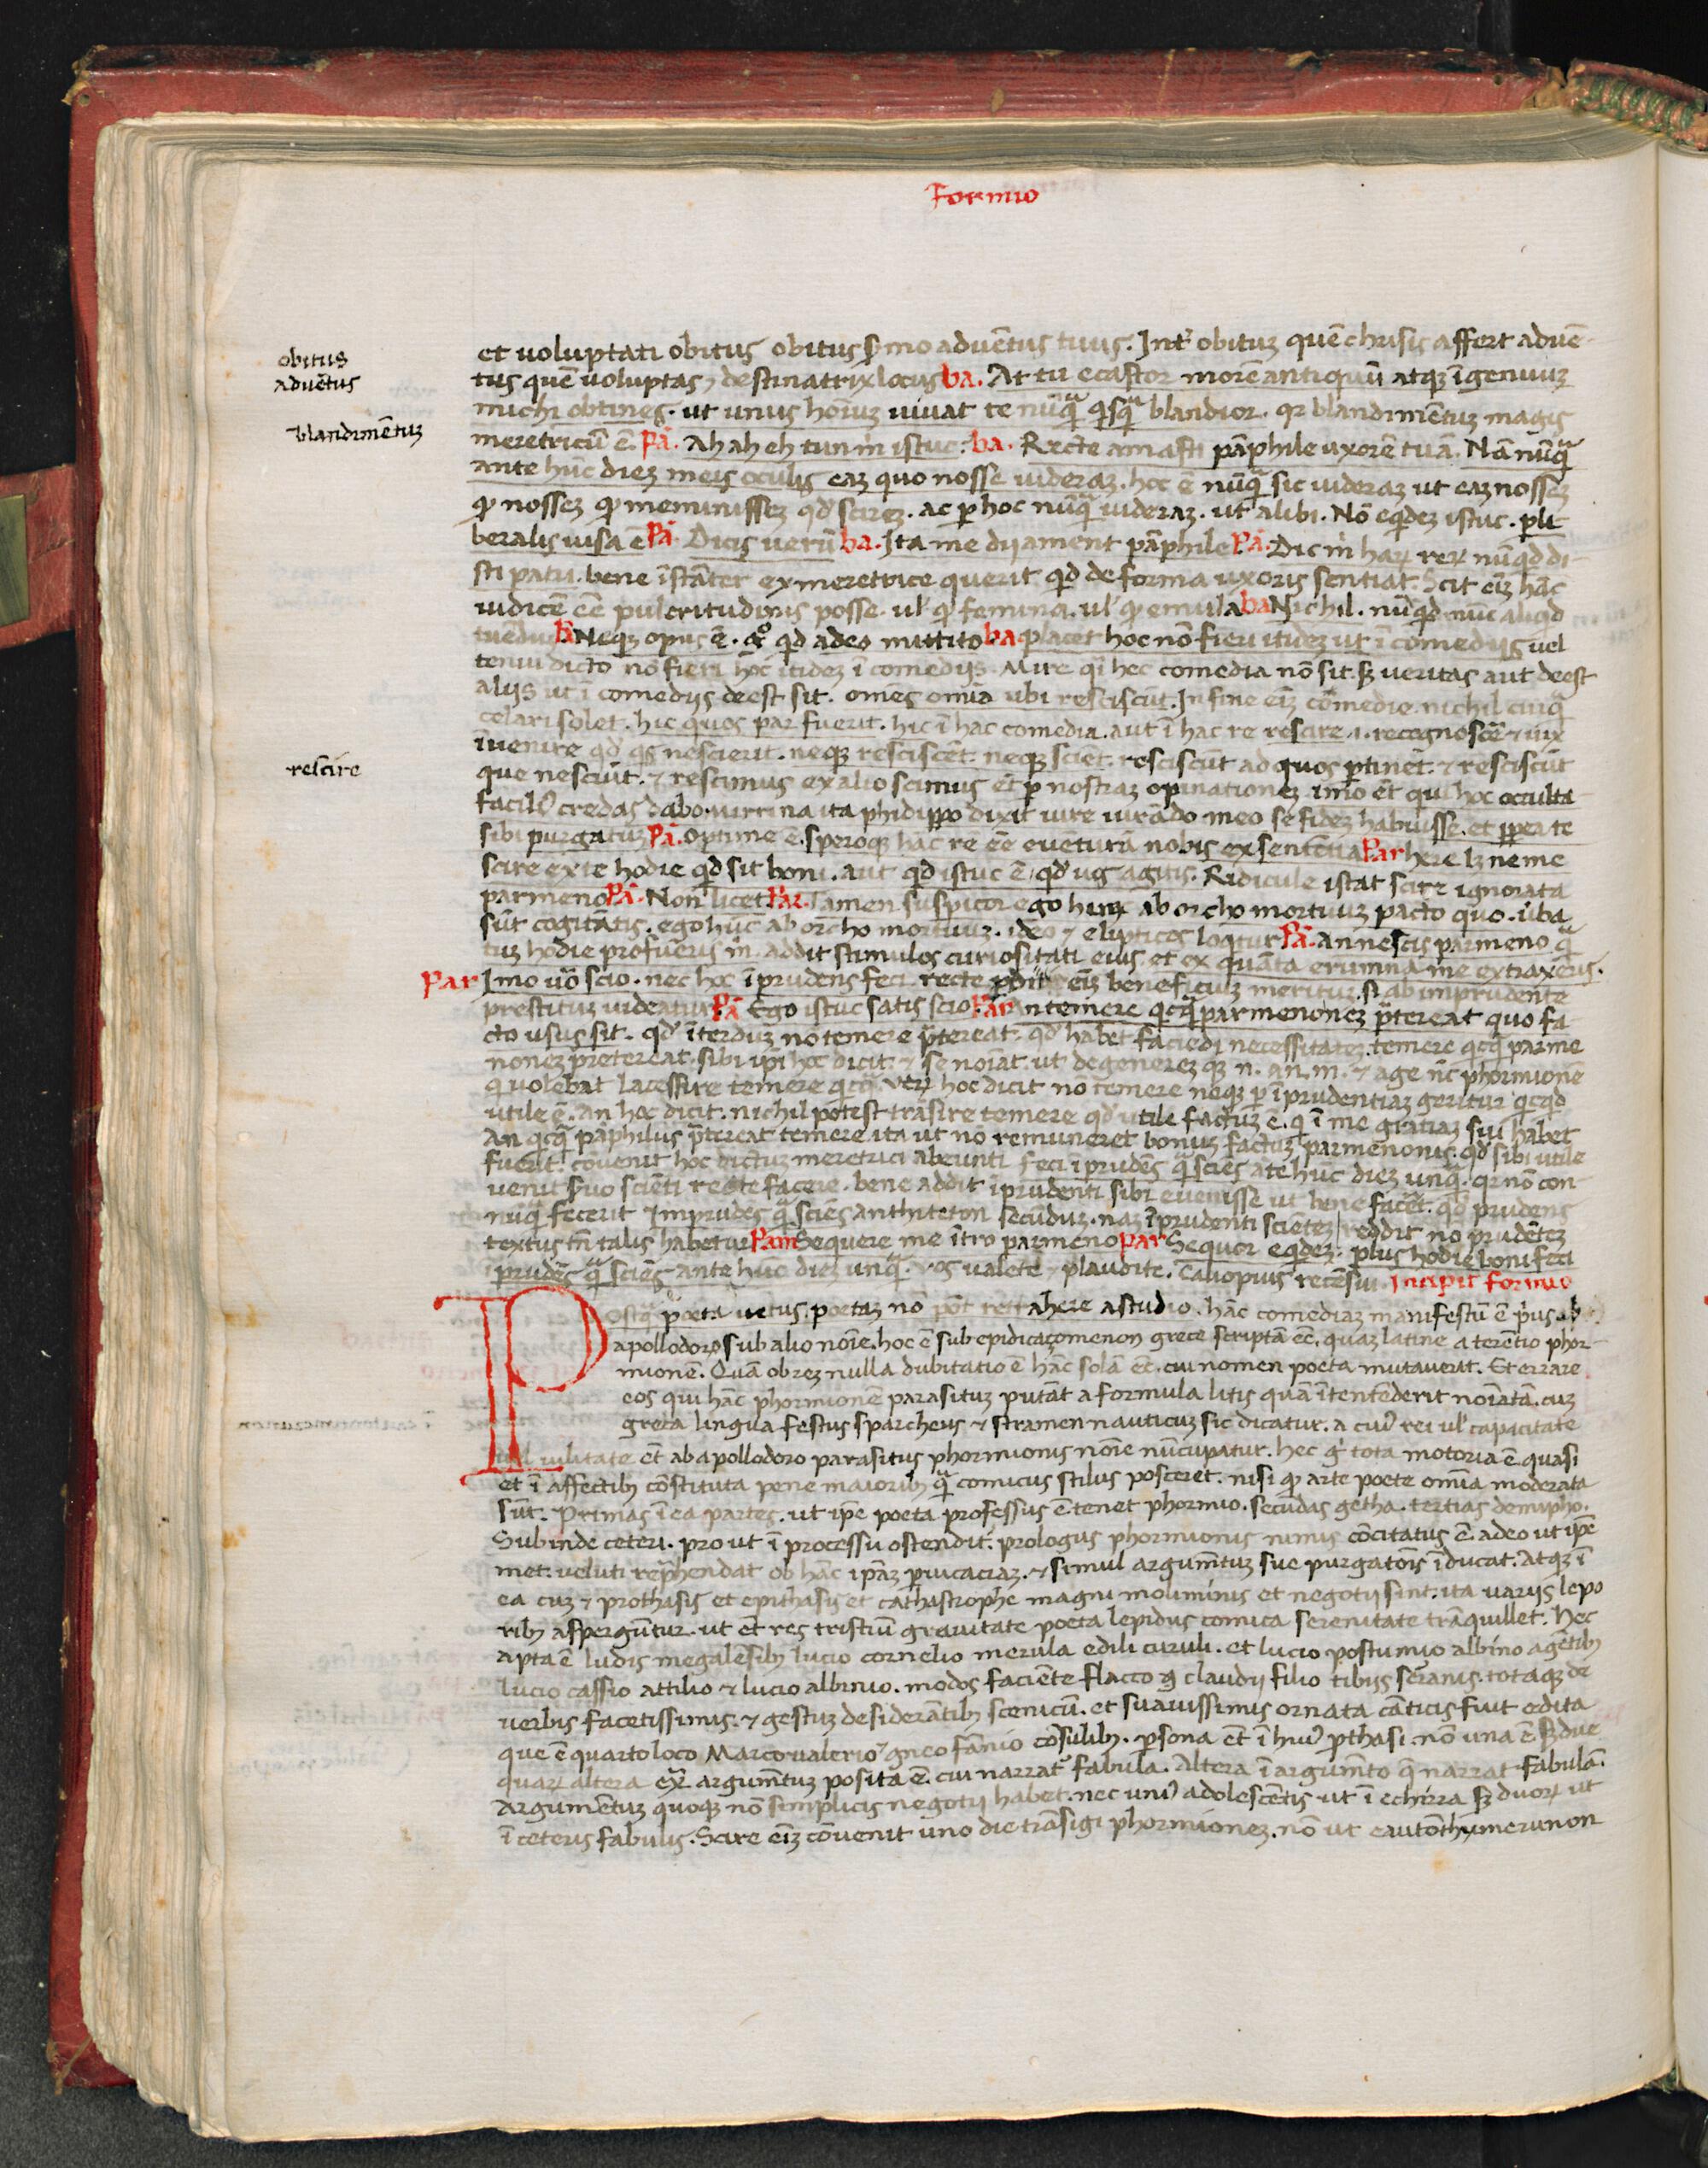 Formio
obitus
aduētus
blandimētuz
rescire
et uoluptati obitus obitus sermo aduētus tuus. Int obituz quē chrisis affert aduē
tus quē uoluptas, destinatrix locus ba. At tu ecastor morē antiquū atqz īgenuuz
michi obtines. ut unus hoīuz uiuat te nūq̄ qsq̄ blandior. qr blandimētuz magis
meretriciū ē. Pā. Ah ah eh tun m̄ istuc. ba. Recte amasti pāphile uxorē tuā. Nā nūq̄
ante hūc diez meis oculis eaz quo nosse uideraz. hoc ē nūq̄ sic uideraz ut eaz nossez
qp nossez qp meminissez qd scirez. ac p hoc nūq̄ uideraz. ut alibi. Nō eqdez istuc. pli
beralis uisa ē Pā. Dicis uerū ba. Ita me dij ament pāphile Pā. Dic m̄ haꝝ reꝝ nūqd di
sti patri. bene īstāter ex meretrice querit qd de forma uxoris sentiat. Scit eīz hāc
iudicē eē pulcritudinis posse. ul qp femina. ul qp emula ba Nichil. nūqd nūc aliqd
tuēdus Pā Neqz opus ē. qd adeo mittito ba placet hoc nō fieri itidez ut ī comedijs uel
teniu dicto nō fieri hoc itidez ī comedijs. Mire qi hec comedia nō sit. sz ueritas aut deest
alijs ut ī comedijs deest sit. omēs omīa ubi resciscūt. In fine eīz comedie nichil cuiq̄
celari solet. hic quos par fuerit. hic ī hac comedia. aut ī hac re rescire .i. recognoscē & uix
īuenire qd qs nescierit. neqz resciscēt. neqz sciēt. resciscūt ad quos ptinēt. & resciscūt
que nesciūt. & rescimus ex alio scimus ēt p nostraz opinationez imo ēt qui hoc occulta
facilꝰ credas dabo. mirrina ita phidippo dixit iure iurādo meo se fidez habuisse. et pp ea te
sibi purgatuz Pā. Optime ē. speroqz hāc rē eē euēturā nobis ex sententia Par here lz ne me
scire ex te hodie qd sit boni. aut qd istuc ē. qd ug agitis. Ridicule istat scire ignorata
parmeno Pā. Non licet Par. Tamen suspicor ego hunc ab orcho mortuuz pacto quo. ūba
sūt cogitātis. ego hūc ab orcho mortuuz. ideo & elipticos loqtur Pā. An nescis parmeno q̄
tuz hodie profueris m̄. addit stimulos curiositati eius et ex quāta erumna me extraxeris.
Par Imo uō scio. nec hoc īprudens feci. recte eīz beneficiuz merituz. si ab imprudente
prestituz uideatur Pā Ego istuc satis scio Par an temere qcq̄ parmenonez ptereat quo fa
cto usus sit. qd īterduz nō temere ptereat. qd habet faciēdi necessitatez. temere qcq̄ parme
nonez pretereat. sibi ipi hoc dicit. & se noīat. ut degenerez qz n. an. m. & age nc phormione
q uolebat lacessire temere qcq̄. uerꝝ hoc dicit nō temere neqz p īprudentiaz geritur qcqd
utile ē. an hoc dicit. nichil potest trāsire temere qd utile factuz ē. q ī me gratiaz sui habet
An qcq̄ pāphilus ptereat temere ita ut nō remuneret bonuz factuz parmenonis. qd sibi utile
fuerit. cōuenit hoc dictuz meretrici abeunti feci īprudēs q̄ sciēs āte hūc diez unq̄. qr nō con
uenit suo sciēti recte facere. bene addit īprudenti sibi euenisse ut bene facēt. qd prudens
nūq̄ fecerit Imprudēs q̄ sciēs anthiteton secunduz. naz īprudenti scientez reddit nō prudētez
textus tn̄ talis habetur Pam Sequere me ītro parmeno par Sequor eqdez. plus hodie boni feci
iprudēs q̄ sciēs ante hūc diez unq̄. Vos ualete & plaudite. Caliopius recēsui. Incipit formio
Postq̄ poeta uetus poetaz nō pōt retrahere a studio. hāc comediaz manifestū ē pius ab
apollodoro sub alio noīe. hoc ē sub epidicazomenon grece scriptā eē. quaz latine a terētio phor
mionē. Quā ob rez nulla dubitatio ē hāc solā eē. cui nomen poeta mutauerit. Et errare
eos qui hāc phormionē parasituz putāt a formula litis quā ītentederit noīatā. cuz
greca lingua festus sparcheus & stramen nauticuz sic dicatur. a cuiꝰ rei ul capacitate
uel uilitate ēt ab apollodoro parasitus phormionis noīe nūcupatur. hec g tota motoria ē quasi
et ī affectibꝫ cōstituta pene maioribꝫ q̄ comicus stilus posceret. nisi qp arte poete omīa moderata
sūt. Primas ī ea partes. ut ipe poeta professus ē tenet phormio. secūdas getha. tertias demipho.
Subinde ceteri. pro ut ī processu ostendit. prologus phormionis nimis cōcitatus ē. adeo ut ipē
met. ueluti rephendat ob hāc ipāz puicaciaz. & simul argumētuz sue purgatōis īducat. Atqz ī
ea cuz & prothasis et epithasij et cathastrophe magni moliminis et negotij sint. ita uarijs lepo
ribꝫ aspergūtur. ut ēt res tristiū grauitate poeta lepidus comica serenitate trāquillet. Hec
apta ē ludis megalesibꝫ lucio cornelio merula edili curuli. et lucio postumio albino agētibꝫ
lucio cassio attilio & lucio albinio. modos faciēte flacco claudij filio tibijs serranis. totaqz de
uerbis facetissimis. & gestuz desiderātibꝫ scenicū. et suauissimis ornata cāticis fuit edita
que ē quarto loco Marco ualerio gneo fānio cōsulibꝫ. psona ēt ī huiꝰ pthasi nō una ē sz due
quaꝝ altera ext argumētuz posita ē. cui narrat fabula. Altera ī argumēto q narrat fabulā.
Argumētuz quoqz nō simplicis negotij habet. nec uniꝰ adolescētis. ut ī echirra sz duoꝝ ut
ī ceteris fabulis. Scire eīz cōuenit uno die trāsigi phormionez. nō ut eautōthymerunon